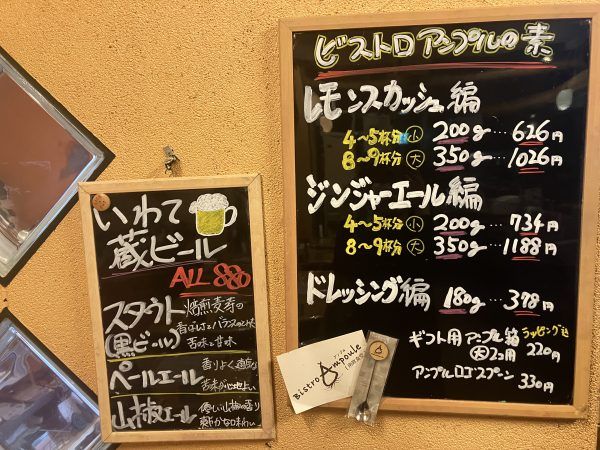 いわて
蔵ビール
ALL 880
スタウト
(黒ビール)
焙煎麦芽の
香ばしさとバランスのとれた
苦味と甘味
ペールエール
香りよく適度な
苦味が心地よい
山椒エール
優しい山椒の香り
爽やかな味わい
ビストロアンプルの素
レモンスカッシュ編
4~5杯分 小 200g…626円
8~9杯分 大 350g…1026円
ジンジャーエール編
4~5杯分 小 200g…734円
8~9杯分 大 350g…1188円
ドレッシング編 180g…378円
ギフト用 アンプル箱 ラッピング込
大2コ用 220円
アンプルロゴスプーン 330円
Bistro Ampoule